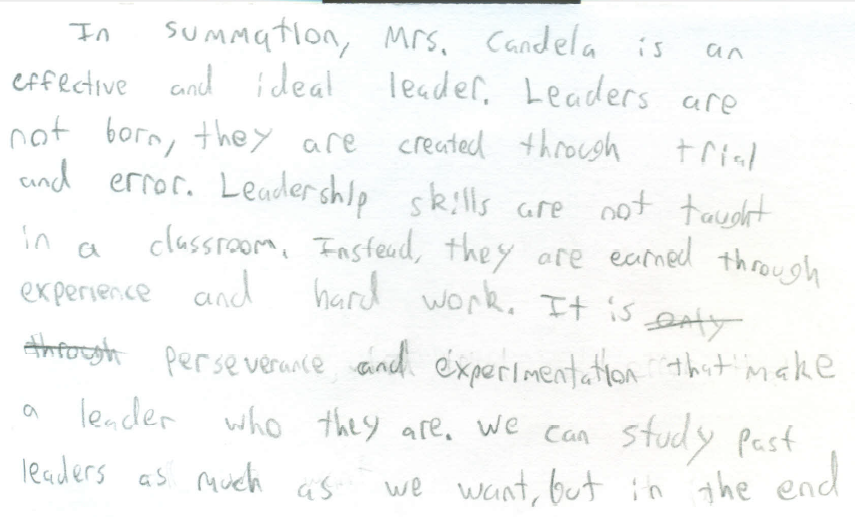 In summation, Mrs. Candela is an
effective and ideal leader. Leaders are
not born, they are created through trial
and error. Leadership skills are not taught
in a classroom. Instead, they are earned through
experience and hard work. It is only
through perseverance and experimentation that make
a leader who they are. We can study past
leaders as much as we want, but in the end